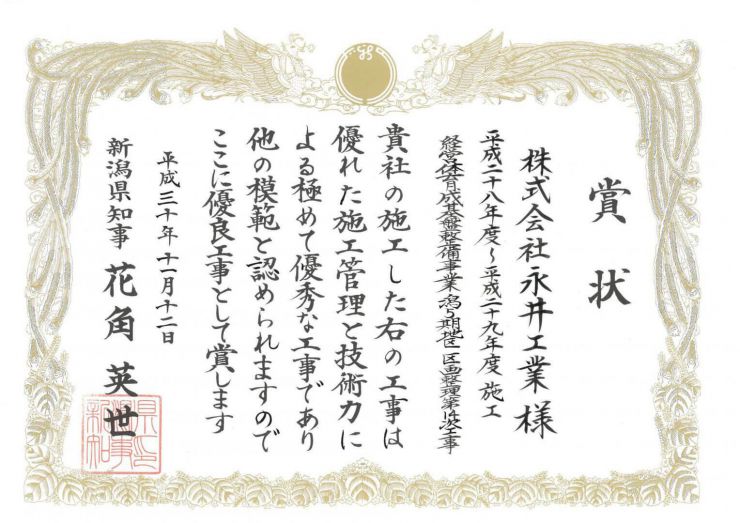 賞状
株式会社永井工業様
平成二十八年度~平成二十九年度 施工
経営体育成基盤整備事業 潟5期地区 区画整理第14次工事
貴社の施工した右の工事は
優れた施工管理と技術力に
よる極めて優秀な工事であり
他の模範と認められますので
ここに優良工事として賞します
平成三十年十一月十二日
新潟県知事 花角英世
新潟県知事印